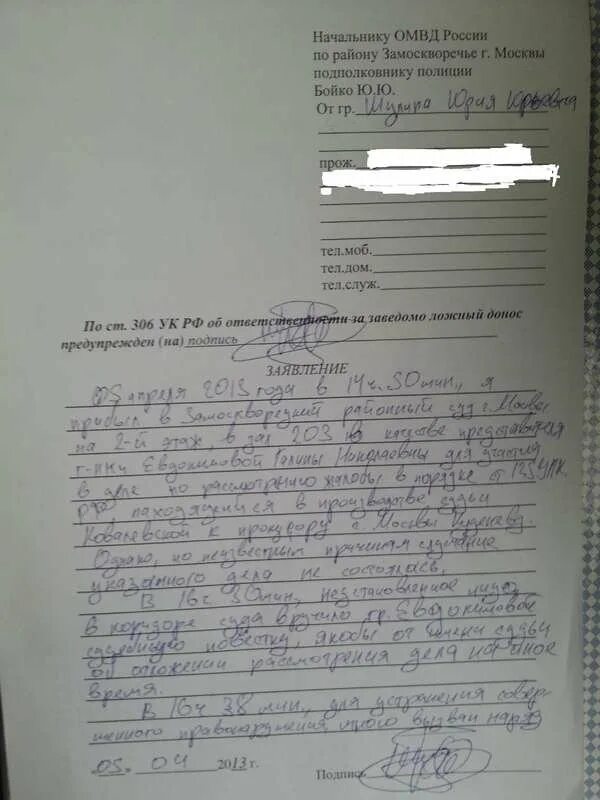 Начальнику ОМВД России
по району Замоскворечье г. Москвы
подполковнику полиции
Бойко Ю.Ю.
От гр. Шулипа Юрия Юрьевича
прож.
тел.моб.
тел.дом.
тел.служ.
По ст. 306 УК РФ об ответственности за заведомо ложный донос
предупрежден (на) подпись
ЗАЯВЛЕНИЕ
05 апреля 2013 года в 14 ч. 30 мин., я
прибыл в Замоскворецкий районный суд г. Москвы
на 2-й этаж в зал 203 в качестве представителя
г-нки Евдокимовой Галины Николаевны для участия
в деле по рассмотрению жалобы в порядке ст 125 УПК
РФ, находящейся в производстве судьи
Ковалевской к прокурору г. Москвы Куденееву.
Однако, по неизвестным причинам слушание
указанного дела не состоялась.
В 16 ч 30 мин, неустановленное лицо
в коридоре суда вручило гр. Евдокимовой
судебную повестку, якобы от имени судьи
об отложении рассмотрения дела на иное
время.
В 16 ч 38 мин., для устранения совер-
шенного правонарушения, мною вызван наряд
05. 04 2013 г.
Подпись